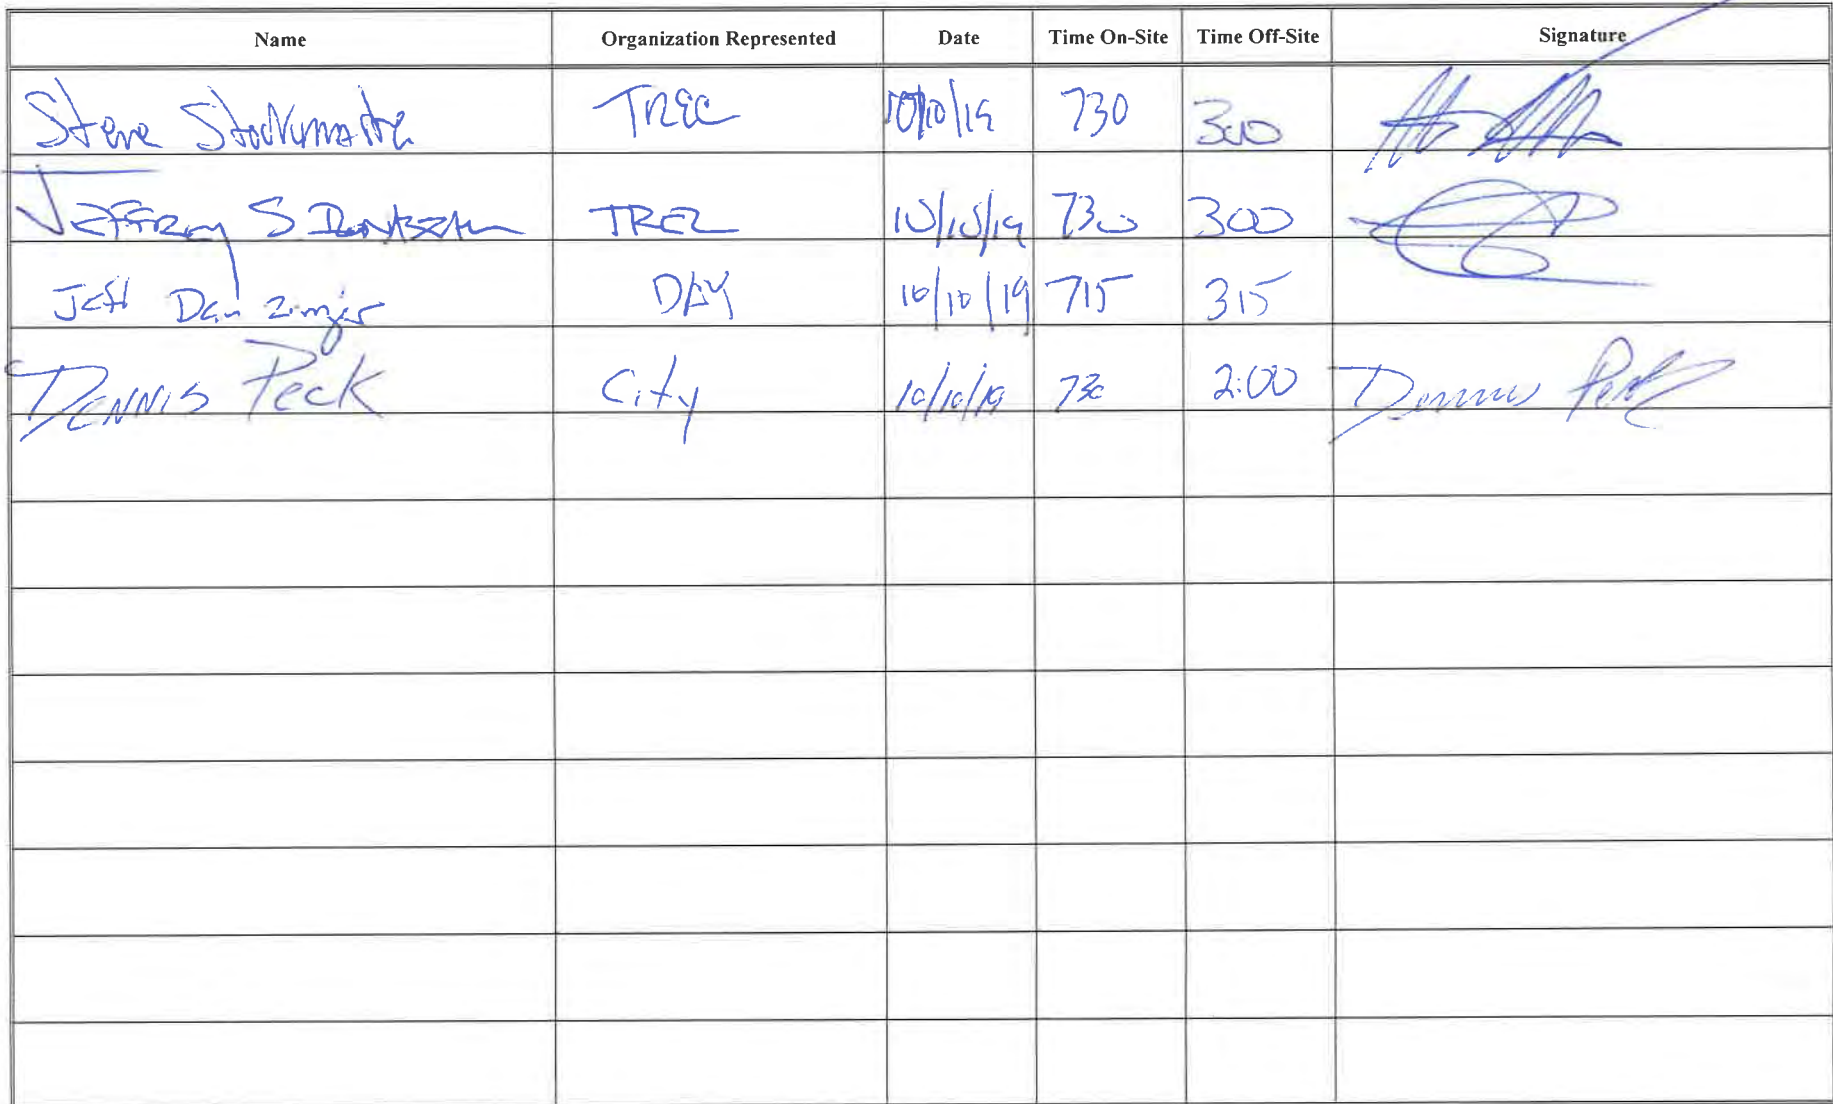 Name Organization Represented Date Time On-Site Time Off-Site Signature
Steve TREC 10/10/19 730 300
Jeffrey S TREC 10/10/19 730 300
Jeff Danzinger DAY 10/10/19 715 315
Dennis Peck City 10/10/19 730 2:00 Dennis Peck